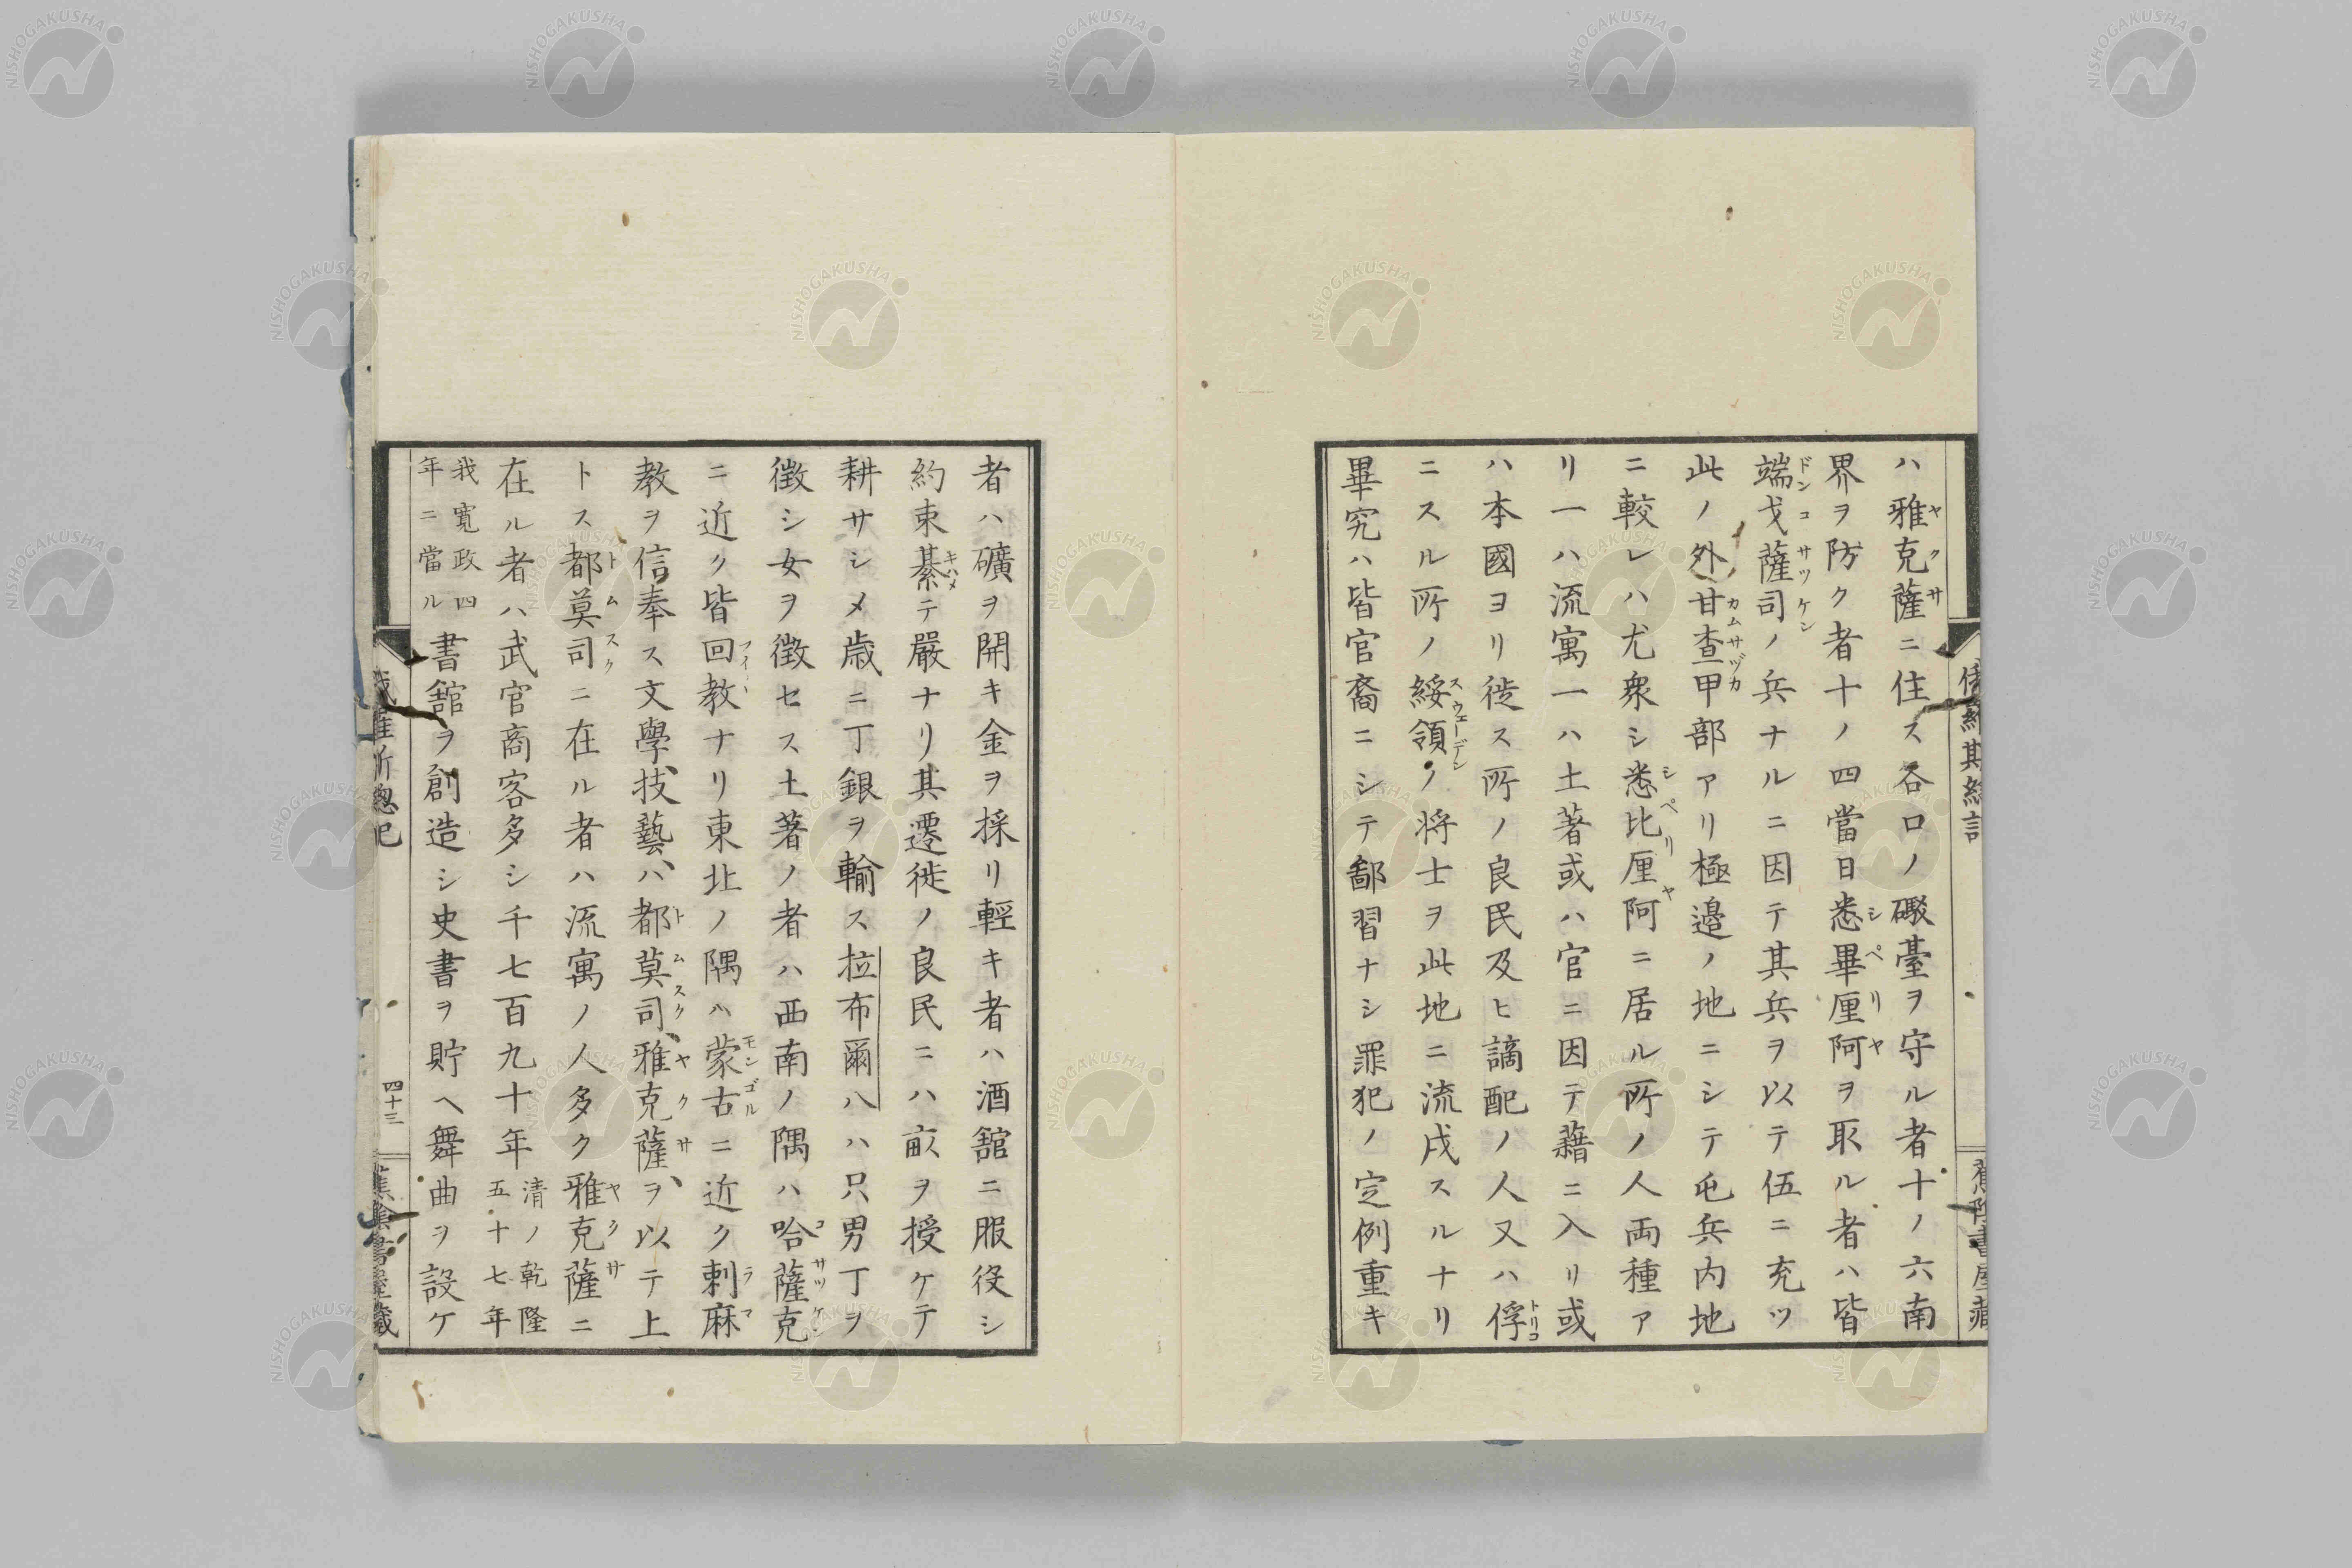 ハ雅克薩ニ住ス各口ノ礮臺ヲ守ル者十ノ六南
界ヲ防ク者十ノ四當日悉畢厘阿ヲ取ル者ハ皆
端戈薩司ノ兵ナルニ因テ其兵ヲ以テ伍ニ充ツ
此ノ外甘查甲部アリ極邉ノ地ニシテ屯兵内地
ニ較レハ尤衆シ悉比厘阿ニ居ル所ノ人両種ア
リ一ハ流寓一ハ土著或ハ官ニ因テ藉ニ入リ或
ハ本國ヨリ徙ス所ノ良民及ヒ謫配ノ人又ハ俘
ニスル所ノ綏領ノ将士ヲ此地ニ流戍スルナリ
畢究ハ皆官裔ニシテ鄙習ナシ罪犯ノ定例重キ
者ハ礦ヲ開キ金ヲ採リ輕キ者ハ酒舘ニ服役シ
約束綦テ嚴ナリ其遷徙ノ良民ニハ畝ヲ授ケテ
耕サシメ歳ニ丁銀ヲ輸ス拉布爾八ハ只男丁ヲ
徴シ女ヲ徴セス土著ノ者ハ西南ノ隅ハ哈薩克
ニ近ク皆回教ナリ東北ノ隅ハ蒙古ニ近ク剌麻
教ヲ信奉ス文學、技藝、ハ都莫司、雅克薩、ヲ以テ上
トス都莫司ニ在ル者ハ流寓ノ人多ク雅克薩ニ
在ル者ハ武官商客多シ千七百九十年清ノ乾隆五十七年
我寛政四年ニ當ル書舘ヲ創造シ史書ヲ貯ヘ舞曲ヲ設ケ
四十三